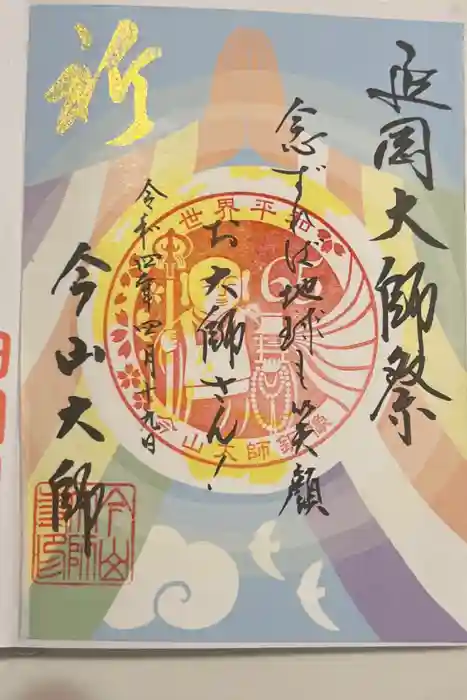 延岡大師祭
念ずれば地球も笑顔
お大師さん!
令和四年四月十九日
今山大師
祈
世界平和
今山大師銅像